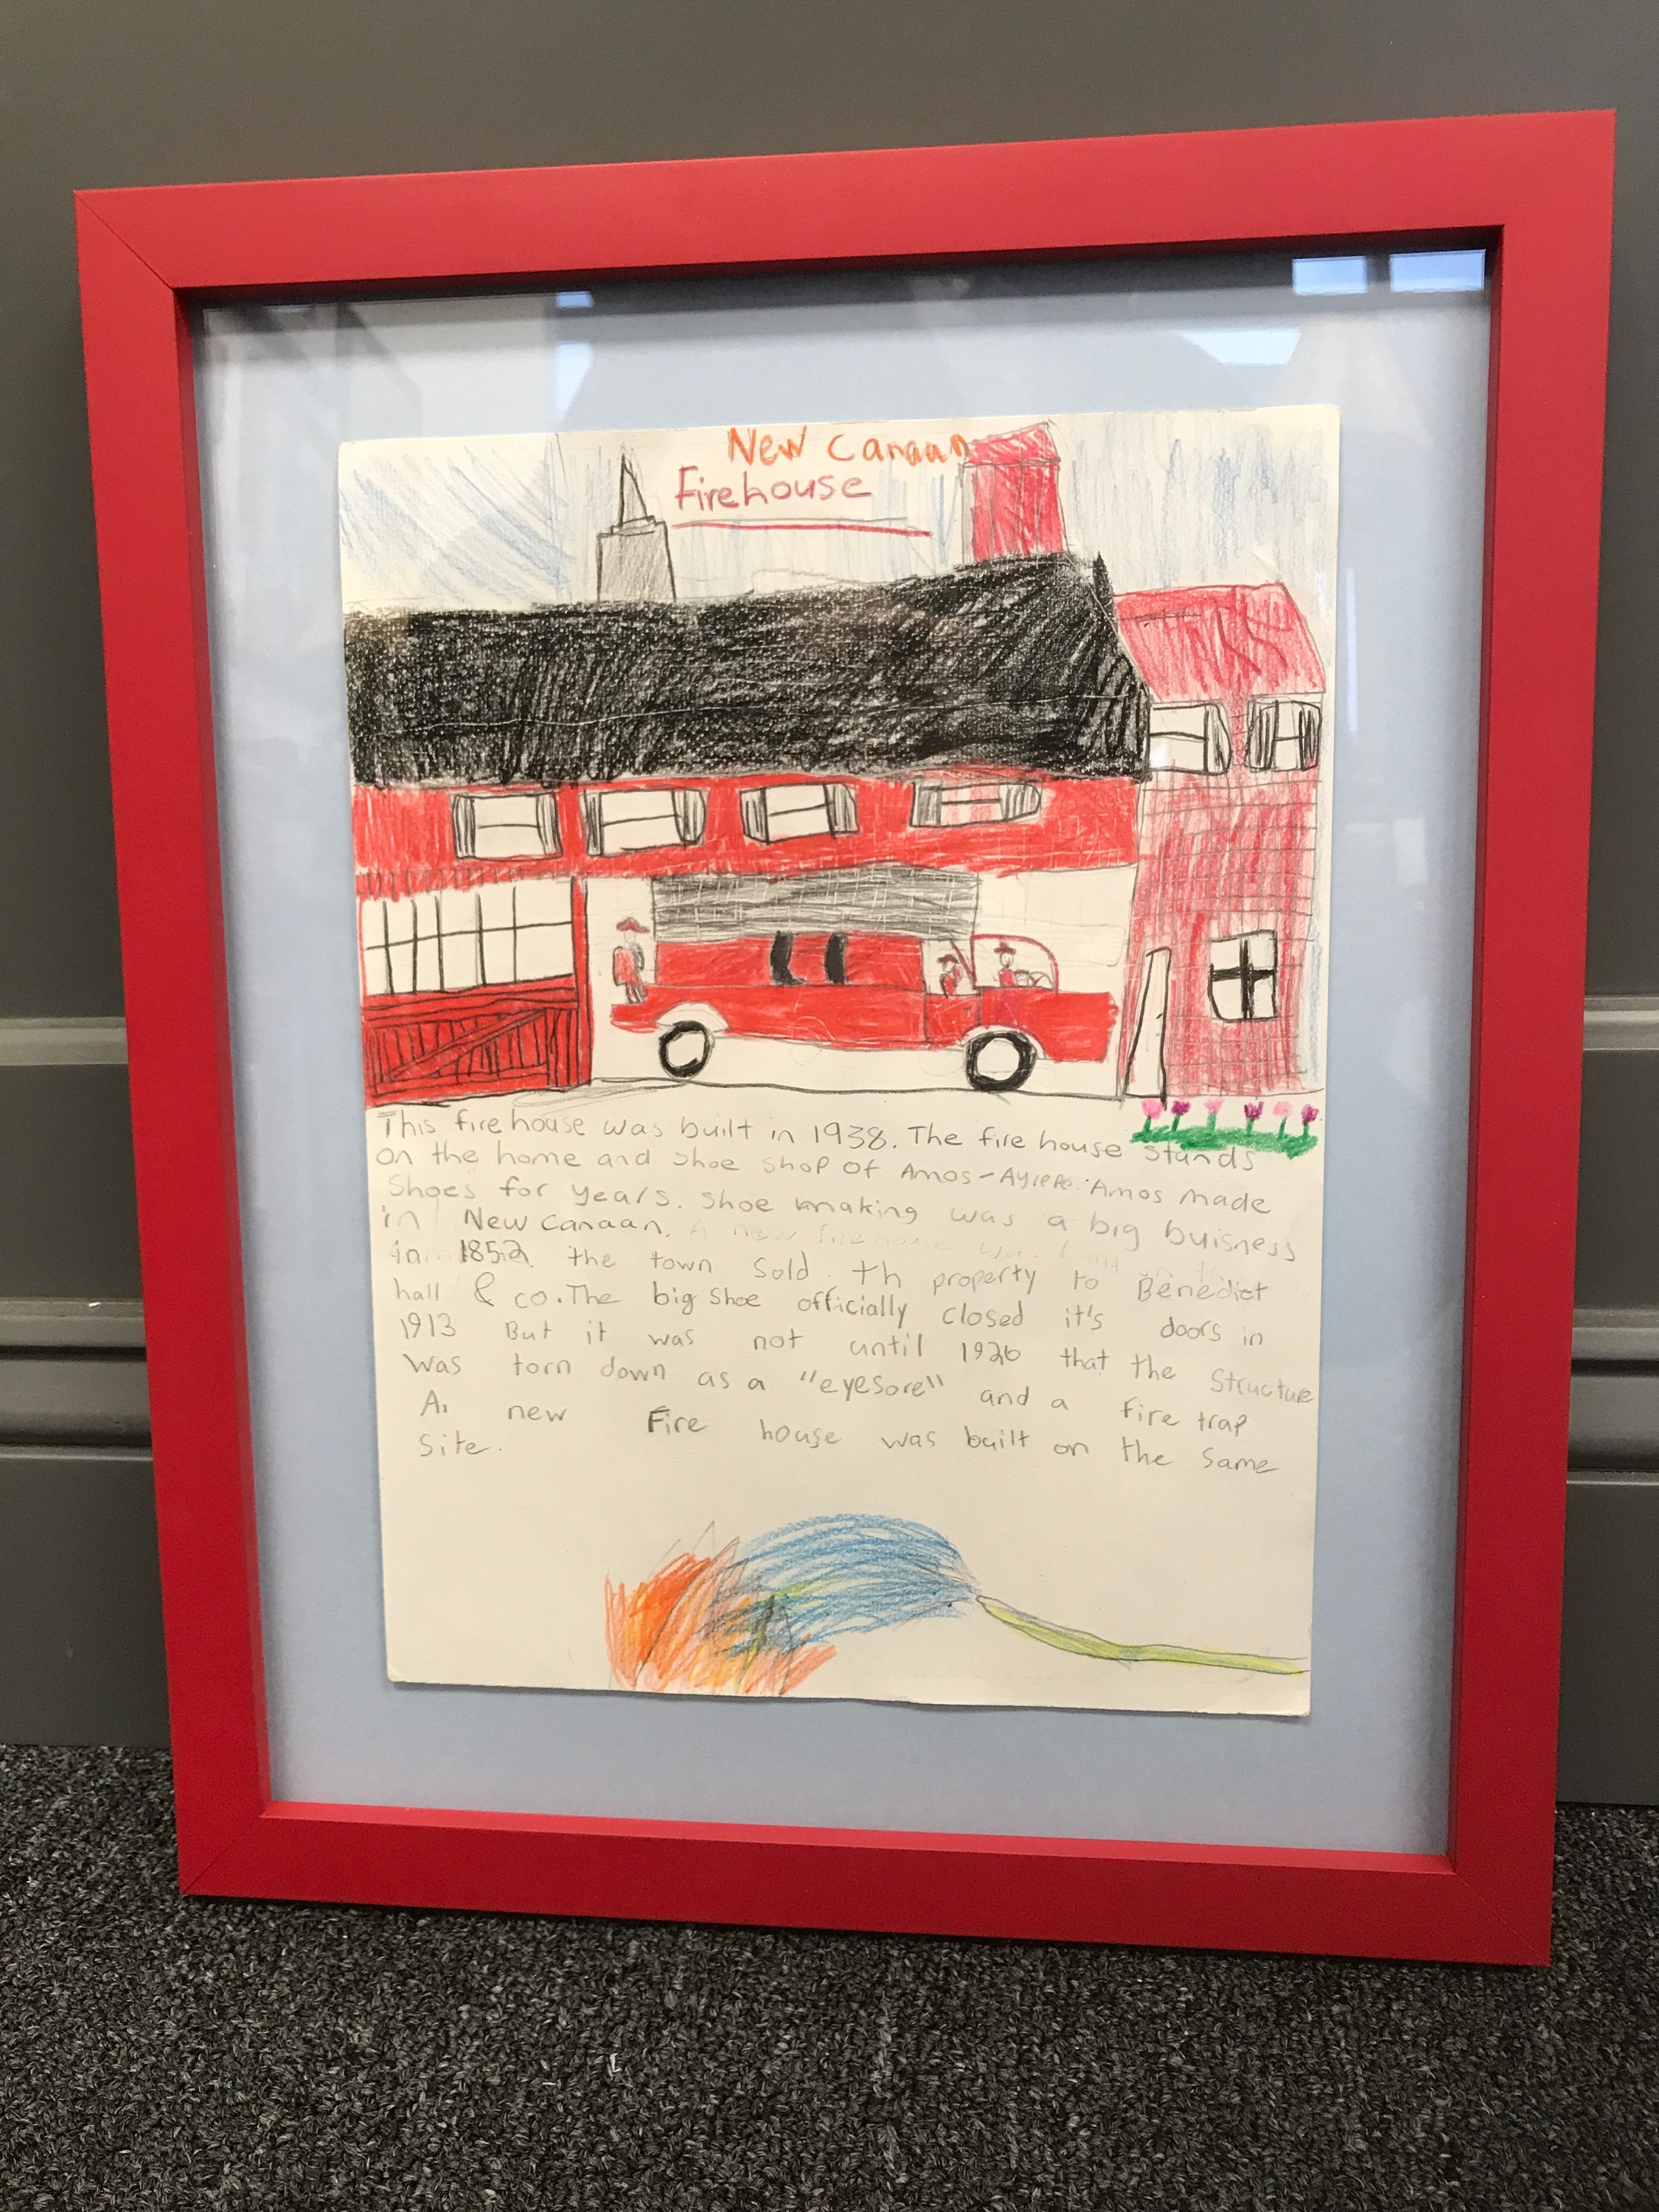 New Canaan
Firehouse
This fire house was built in 1938. The fire house stands
on the home and shoe shop of Amos- Amos made
Shoes for years. shoe making was a big buisness
in New Canaan. A new firehouse was
in 1852 the town sold th property to Benedict
hall & co. The big shoe officially closed it's doors in
1913 But it was not until 1926 that the structure
was torn down as a "eyesore" and a fire trap
A new Fire house was built on the same
Site.